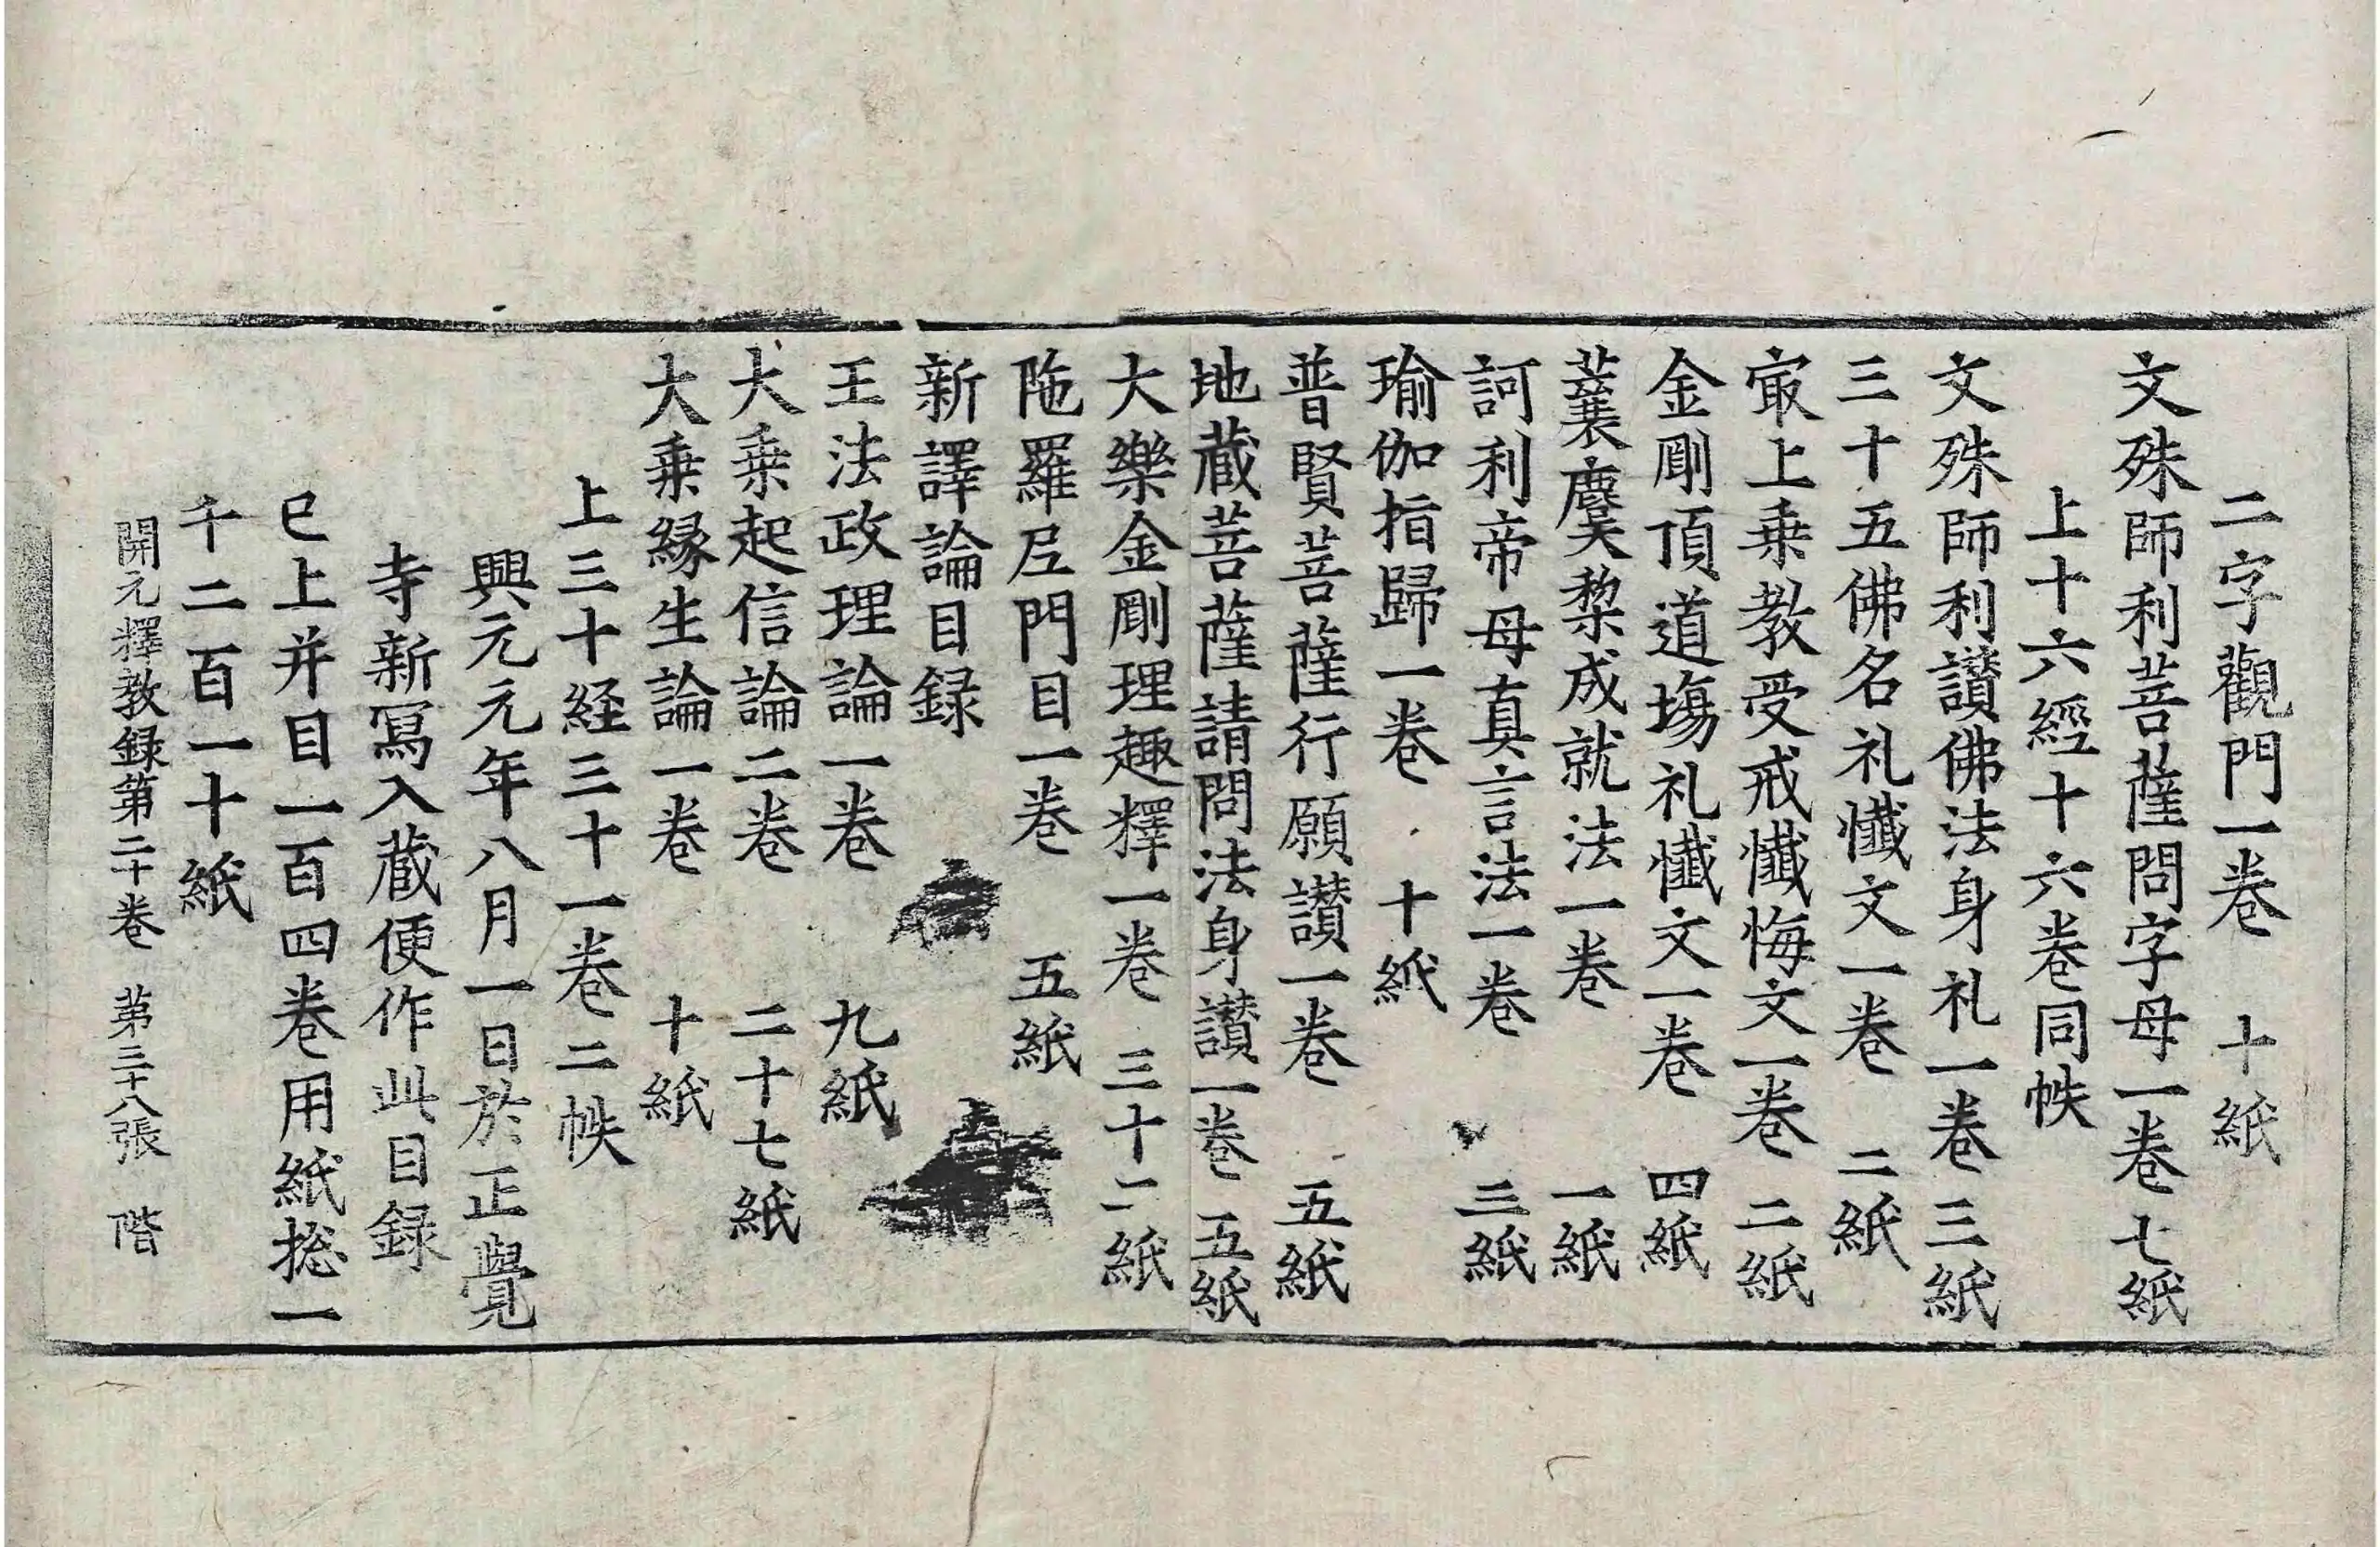 二字觀門一卷 十紙
文殊師利菩薩問字母一卷 七紙
上十六經十六卷同帙
文殊師利讃佛法身礼一卷 三紙
三十五佛名礼懺文一卷 二紙
㝡上乗教受戒懺悔文一卷 二紙
金剛頂道場礼懺文一卷 四紙
蘘麌黎成就法一卷 一紙
訶利帝母真言法一卷 三紙
瑜伽指歸一卷 十紙
普賢菩薩行願讃一卷 五紙
地蔵菩薩請問法身讃一卷 五紙
大樂金剛理趣釋一卷 三十二紙
陁羅尼門目一卷 五紙
新譯論目録
王法政理論一卷 九紙
大乗起信論二卷 二十七紙
大乗縁生論一卷 十紙
上三十経三十一卷二帙
興元元年八月一日於正覺
寺新寫入蔵便作此目録
已上并目一百四卷用紙捴一
千二百一十紙
開元釋教録第二十卷 第三十八張 階